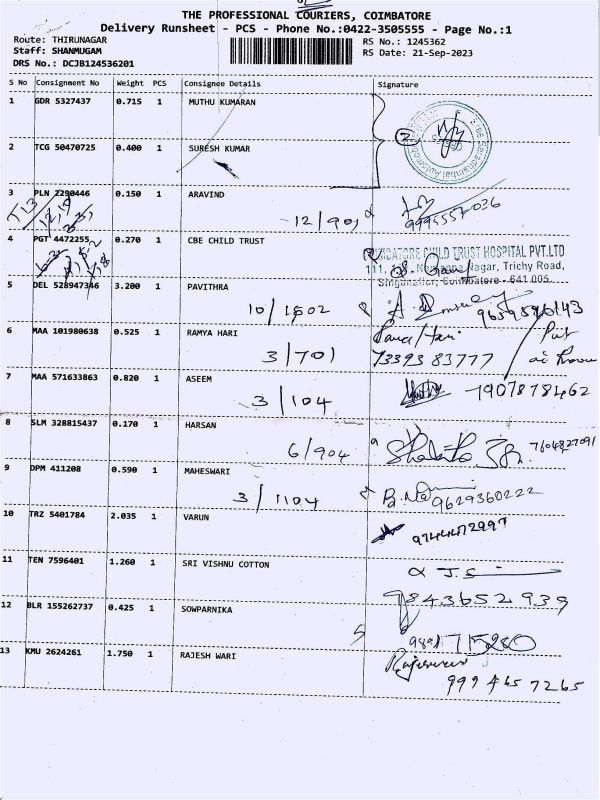 THE PROFESSIONAL COURIERS, COIMBATORE
Delivery Runsheet - PCS - Phone No.:0422-3505555 - Page No.:1
Route: THIRUNAGAR
Staff: SHANMUGAM
DRS No.: DCJB124536201
RS No.: 1245362
RS Date: 21-Sep-2023
S No Consignment No Weight PCS Consignee Details Signature
1 GDR 5327437 0.715 1 MUTHU KUMARAN
2
2 TCG 50470725 0.400 1 SURESH KUMAR
3 PLN 2290446 0.150 1 ARAVIND
12/901 9995557036
4 PGT 4472255 0.270 1 CBE CHILD TRUST
COIMBATORE CHILD TRUST HOSPITAL PVT.LTD
Nagar, Trichy Road,
Singanallur, Coimbatore - 641 005
5 DEL 528947346 3.200 1 PAVITHRA
10/1802
6 MAA 101980638 0.525 1 RAMYA HARI
3/701 73393 83777
7 MAA 571633863 0.820 1 ASEEM
3/104 7907878462
8 SLM 328815437 0.170 1 HARSAN
6/904 7604827091
9 DPM 411208 0.590 1 MAHESWARI
3/1104 9629360222
10 TRZ 5401784 2.035 1 VARUN
9744472997
11 TEN 7596401 1.260 1 SRI VISHNU COTTON
J.S
9843652939
12 BLR 155262737 0.425 1 SOWPARNIKA
13 KMU 2624261 1.750 1 RAJESH WARI
999 465 7265